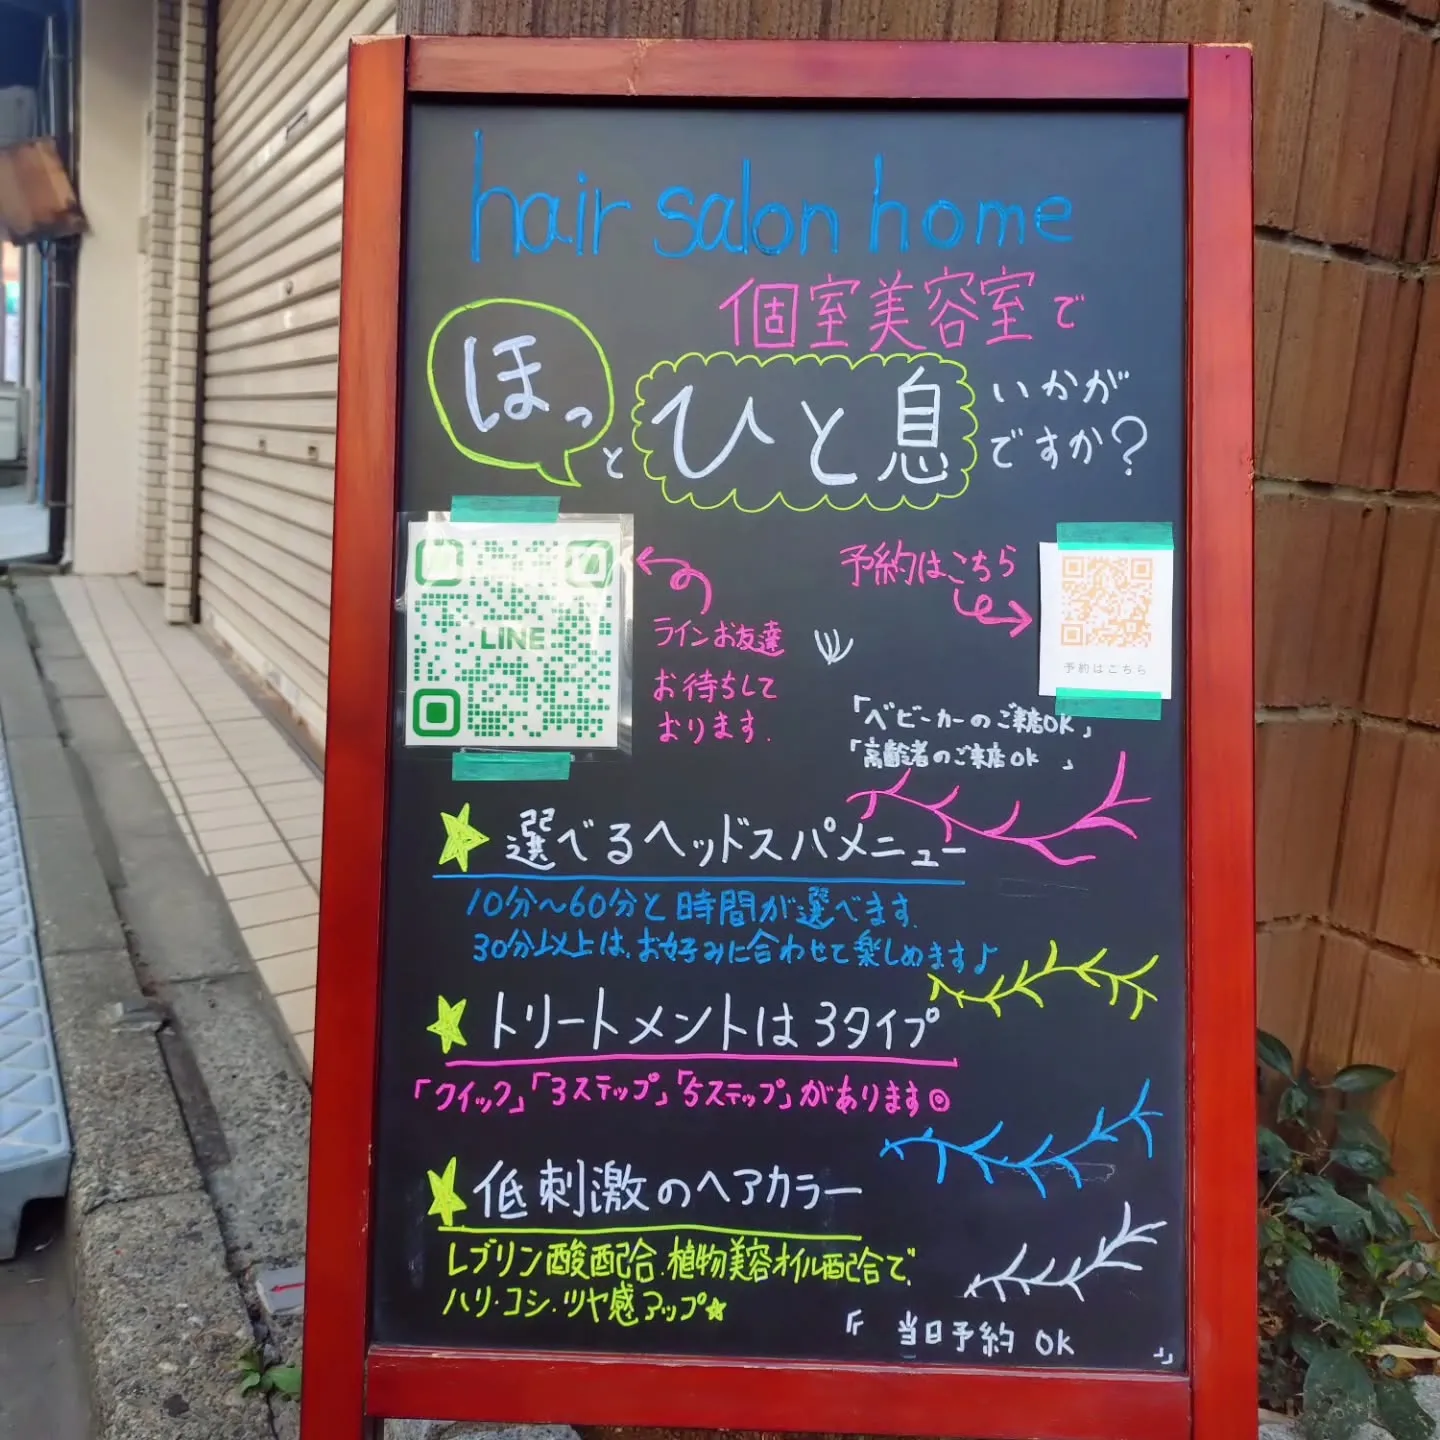 hair salon home
個室美容室で
ほっと ひと息 いかが
ですか?
LINE
ラインお友達
お待ちして
おります.
予約はこちら
予約はこちら
「ベビーカーのご来店OK」
「高齢者のご来店OK 」
選べるヘッドスパメニュー
10分~60分と時間が選べます.
30分以上は、お好みに合わせて楽しめますよ
トリートメントは3タイプ
「クイック」「3ステップ」「5ステップ」があります◎
低刺激のヘアカラー
レブリン酸配合.植物美容オイル配合で、
ハリ・コシ・ツヤ感アップ☆
「 当日予約 OK 」